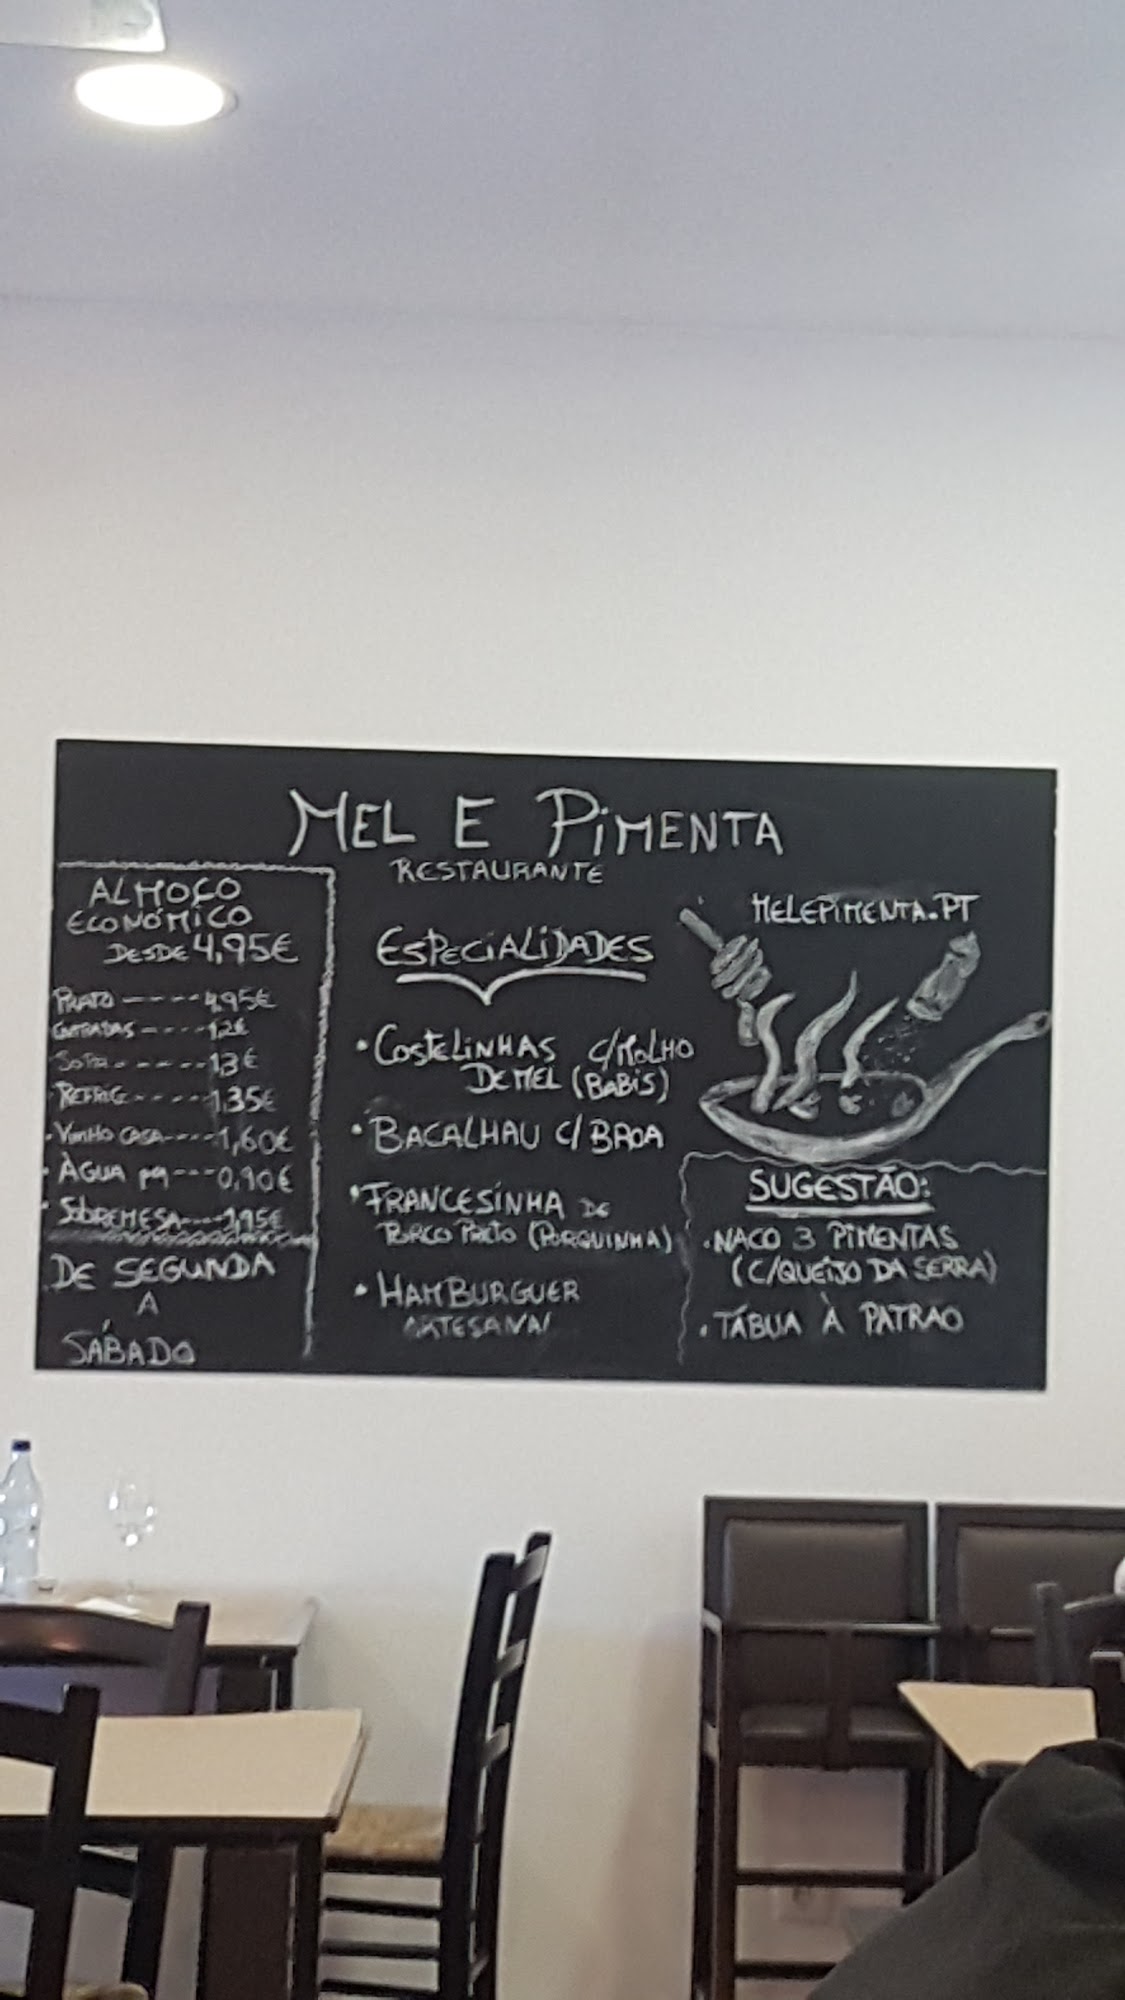 MEL E PIMENTA
RESTAURANTE
ALMOÇO
ECONÓMICO
DESDE 4,95€
PRATO ----- 4,95€
ENTRADAS ---- 1,2€
SOPA ------ 1,3€
REFRIG ----- 1,35€
VINHO CASA ---- 1,60€
ÀGUA pq --- 0,90€
SOBREMESA ---- 1,95€
DE SEGUNDA
A
SÁBADO
ESPECIALIDADES
• COSTELINHAS C/MOLHO
DE MEL (BABIS)
• BACALHAU C/ BROA
• FRANCESINHA DE
PORCO PRETO (PORQUINHA)
• HAMBURGUER
ARTESANAL
MELEPIMENTA.PT
SUGESTÃO:
• NACO 3 PIMENTAS
(C/QUEIJO DA SERRA)
• TÁBUA À PATRAO